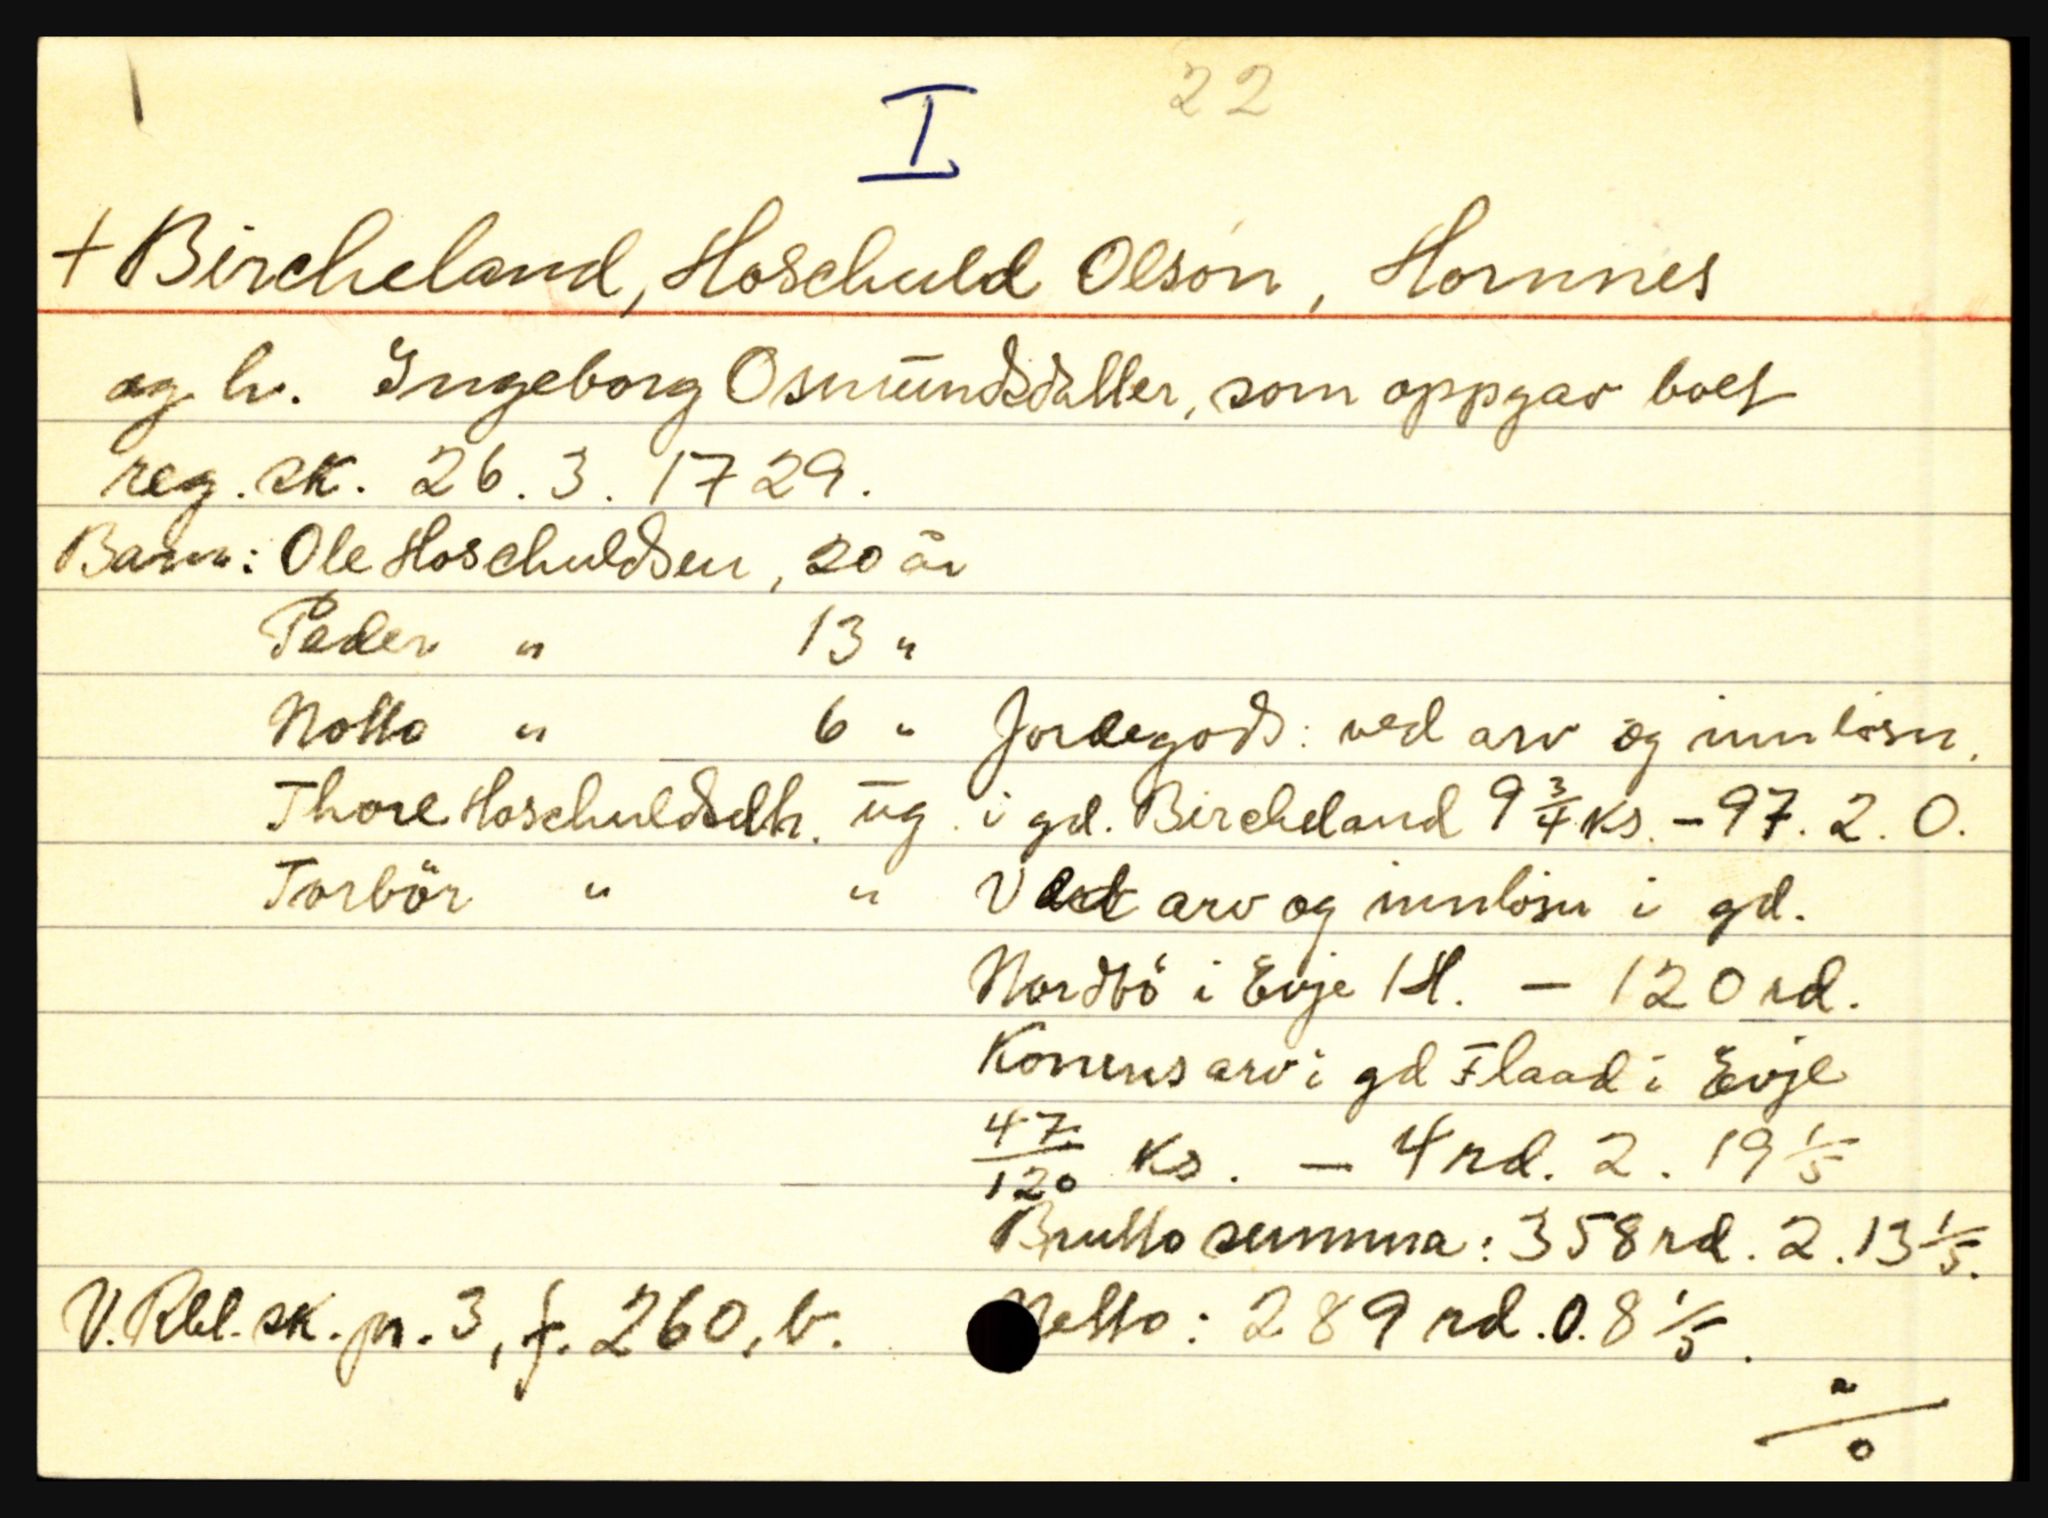 I 22
+ Bircheland, Hoschuld Olson, Hornnes
og h. Ingeborg Osmundsdatter, som oppgav boet
reg. sk. 26. 3. 1729.
Barn: Ole Hoschuldsen, 20 år
Peder " 13 "
Notto " 6 " Jordegods: ved arv og innløsn.
Thore Hoschuldsdtr. ug. i gd. Bircheland 9 3/4 ks. - 97. 2. 0.
Torbör " " Ved arv og innløsn i gd.
Nordbö i Evje 1 H. - 120 rd.
Konens arv i gd Flaad i Evje
47/120 ks. - 4 rd. 2. 19 1/5
Brutto summa: 358 rd. 2. 13 1/5.
V. Rbl. sk. pr. 3, f. 260, b. Netto: 289 rd. 0. 8 1/5.